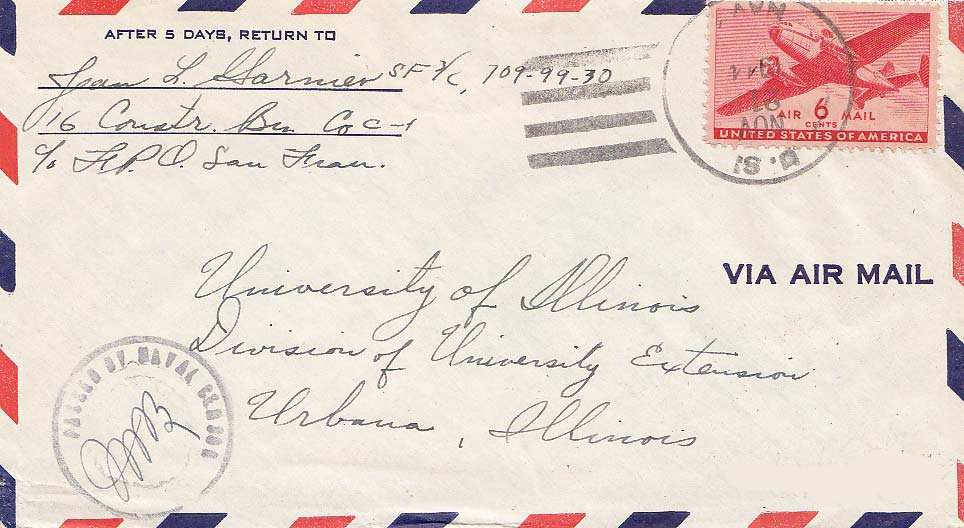 AFTER 5 DAYS, RETURN TO
Jean L. Garnier SF 3/C, 709-99-30
16 Constr. Bn. Co C-1
c/o F.P.O. San Fran.
NOV
21
AIR 6 MAIL
CENTS
UNITED STATES OF AMERICA
VIA AIR MAIL
University of Illinois
Division of University Extension
Urbana, Illinois
PASSED BY NAVAL CENSOR